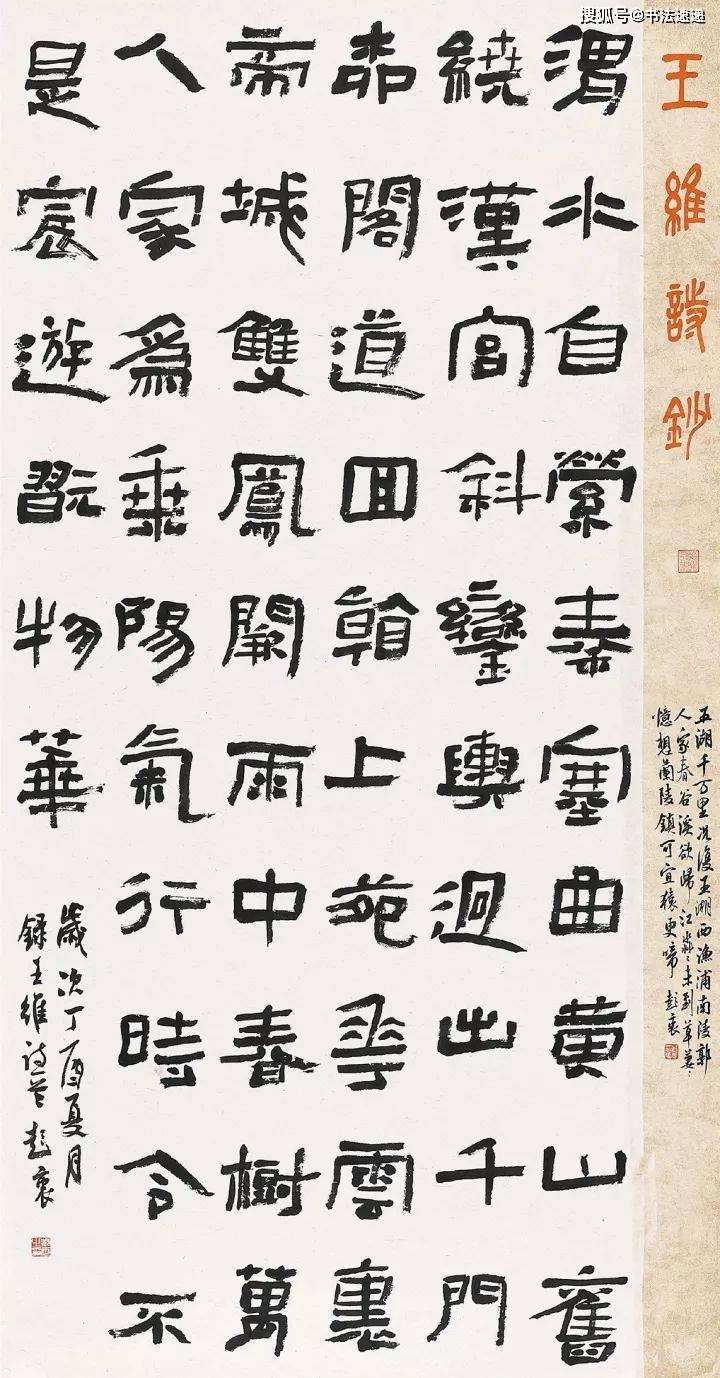 搜狐号@书法速递
王維詩鈔
五湖千万里况復五湖西渔浦南陵郭
人家春谷溪欲歸江淼〻未到草萋〻
憶想蘭陵鎮可宜猿更啼 彭衷
渭水自縈秦塞曲黄山舊
繞漢宫斜鑾輿迥出千門
柳閣道回看上苑花雲裏
帝城雙鳳闕雨中春樹萬
人家為乘陽氣行時令不
是宸遊翫物華
歲次丁酉夏月
錄王維詩 彭衷